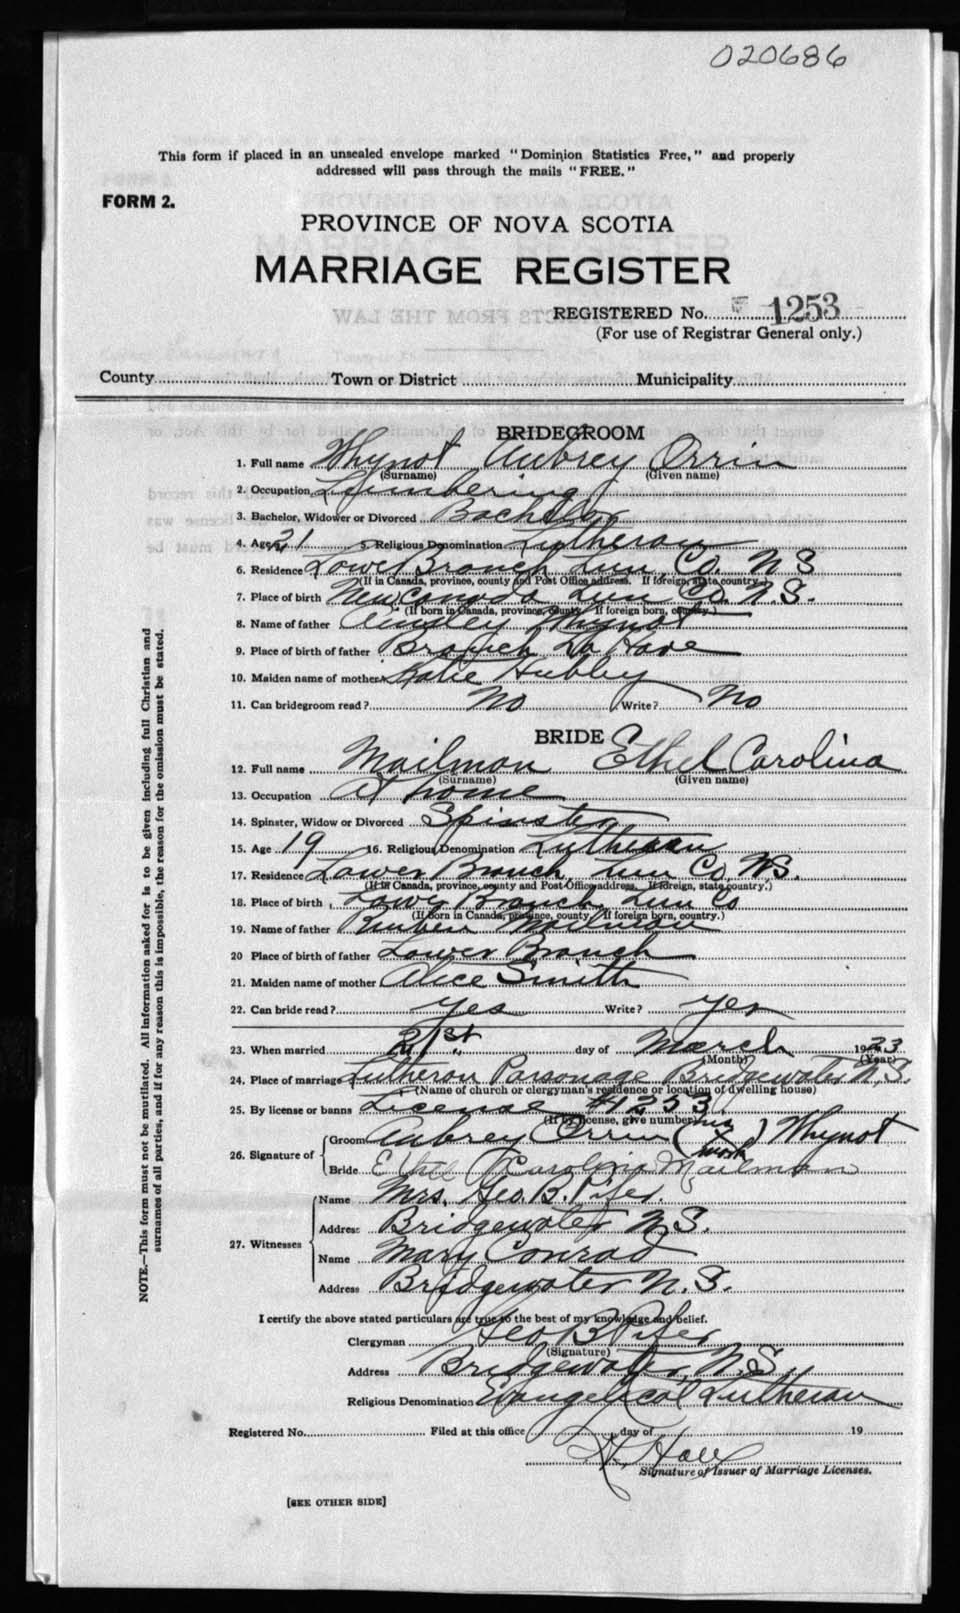 020686
This form if placed in an unsealed envelope marked "Dominion Statistics Free," and properly
addressed will pass through the mails "FREE."
FORM 2.
PROVINCE OF NOVA SCOTIA
MARRIAGE REGISTER
REGISTERED No. 1253
(For use of Registrar General only.)
County Town or District Municipality
BRIDEGROOM
1. Full name Whynot Aubrey Orrin
(Surname) (Given name)
2. Occupation Lumbering
3. Bachelor, Widower or Divorced Bachelor
4. Age 21 5. Religious Denomination Lutheran
6. Residence Lower Branch Lun. Co. N S
(If in Canada, province, county and Post Office address. If foreign, state country.)
7. Place of birth New Canada Lun Co. N.S.
(If born in Canada, province, county. If foreign born, country.)
8. Name of father Whynot
9. Place of birth of father Branch La Have
10. Maiden name of mother Katie Hubley
11. Can bridegroom read? No Write? No
BRIDE
12. Full name Mailman Ethel Carolina
(Surname) (Given name)
13. Occupation At home
14. Spinster, Widow or Divorced Spinster
15. Age 19 16. Religious Denomination Lutheran
17. Residence Lower Branch, Lun Co. N.S.
(If in Canada, province, county and Post Office address. If foreign, state country.)
18. Place of birth Lower Branch Lun Co
(If born in Canada, province, county. If foreign born, country.)
19. Name of father Reuben Mailman
20 Place of birth of father Lower Branch
21. Maiden name of mother Alice Smith
22. Can bride read? yes Write? yes
23. When married 21st day of March 1923
(Month) (Year)
24. Place of marriage Lutheran Parsonage Bridgewater N.S.
(Name of church or clergyman's residence or location of dwelling house)
25. By license or banns License #1253.
(If by license, give number)
26. Signature of Groom Aubrey Orrin (his X mark) Whynot
Bride Ethel Carolina Mailman
27. Witnesses Name Mrs. Geo. B. Pifer.
Address Bridgewater N.S.
Name Mary Conrad
Address Bridgewater N.S.
I certify the above stated particulars are true to the best of my knowledge and belief.
Clergyman Geo B Pifer
(Signature)
Address Bridgewater, N.S.
Religious Denomination Evangelical Lutheran
Registered No. Filed at this office day of 19
Signature of Issuer of Marriage Licenses.
[SEE OTHER SIDE]
NOTE.—This form must not be mutilated. All information asked for is to be given including full Christian and
surnames of all parties, and if for any reason this is impossible, the reason for the omission must be stated.